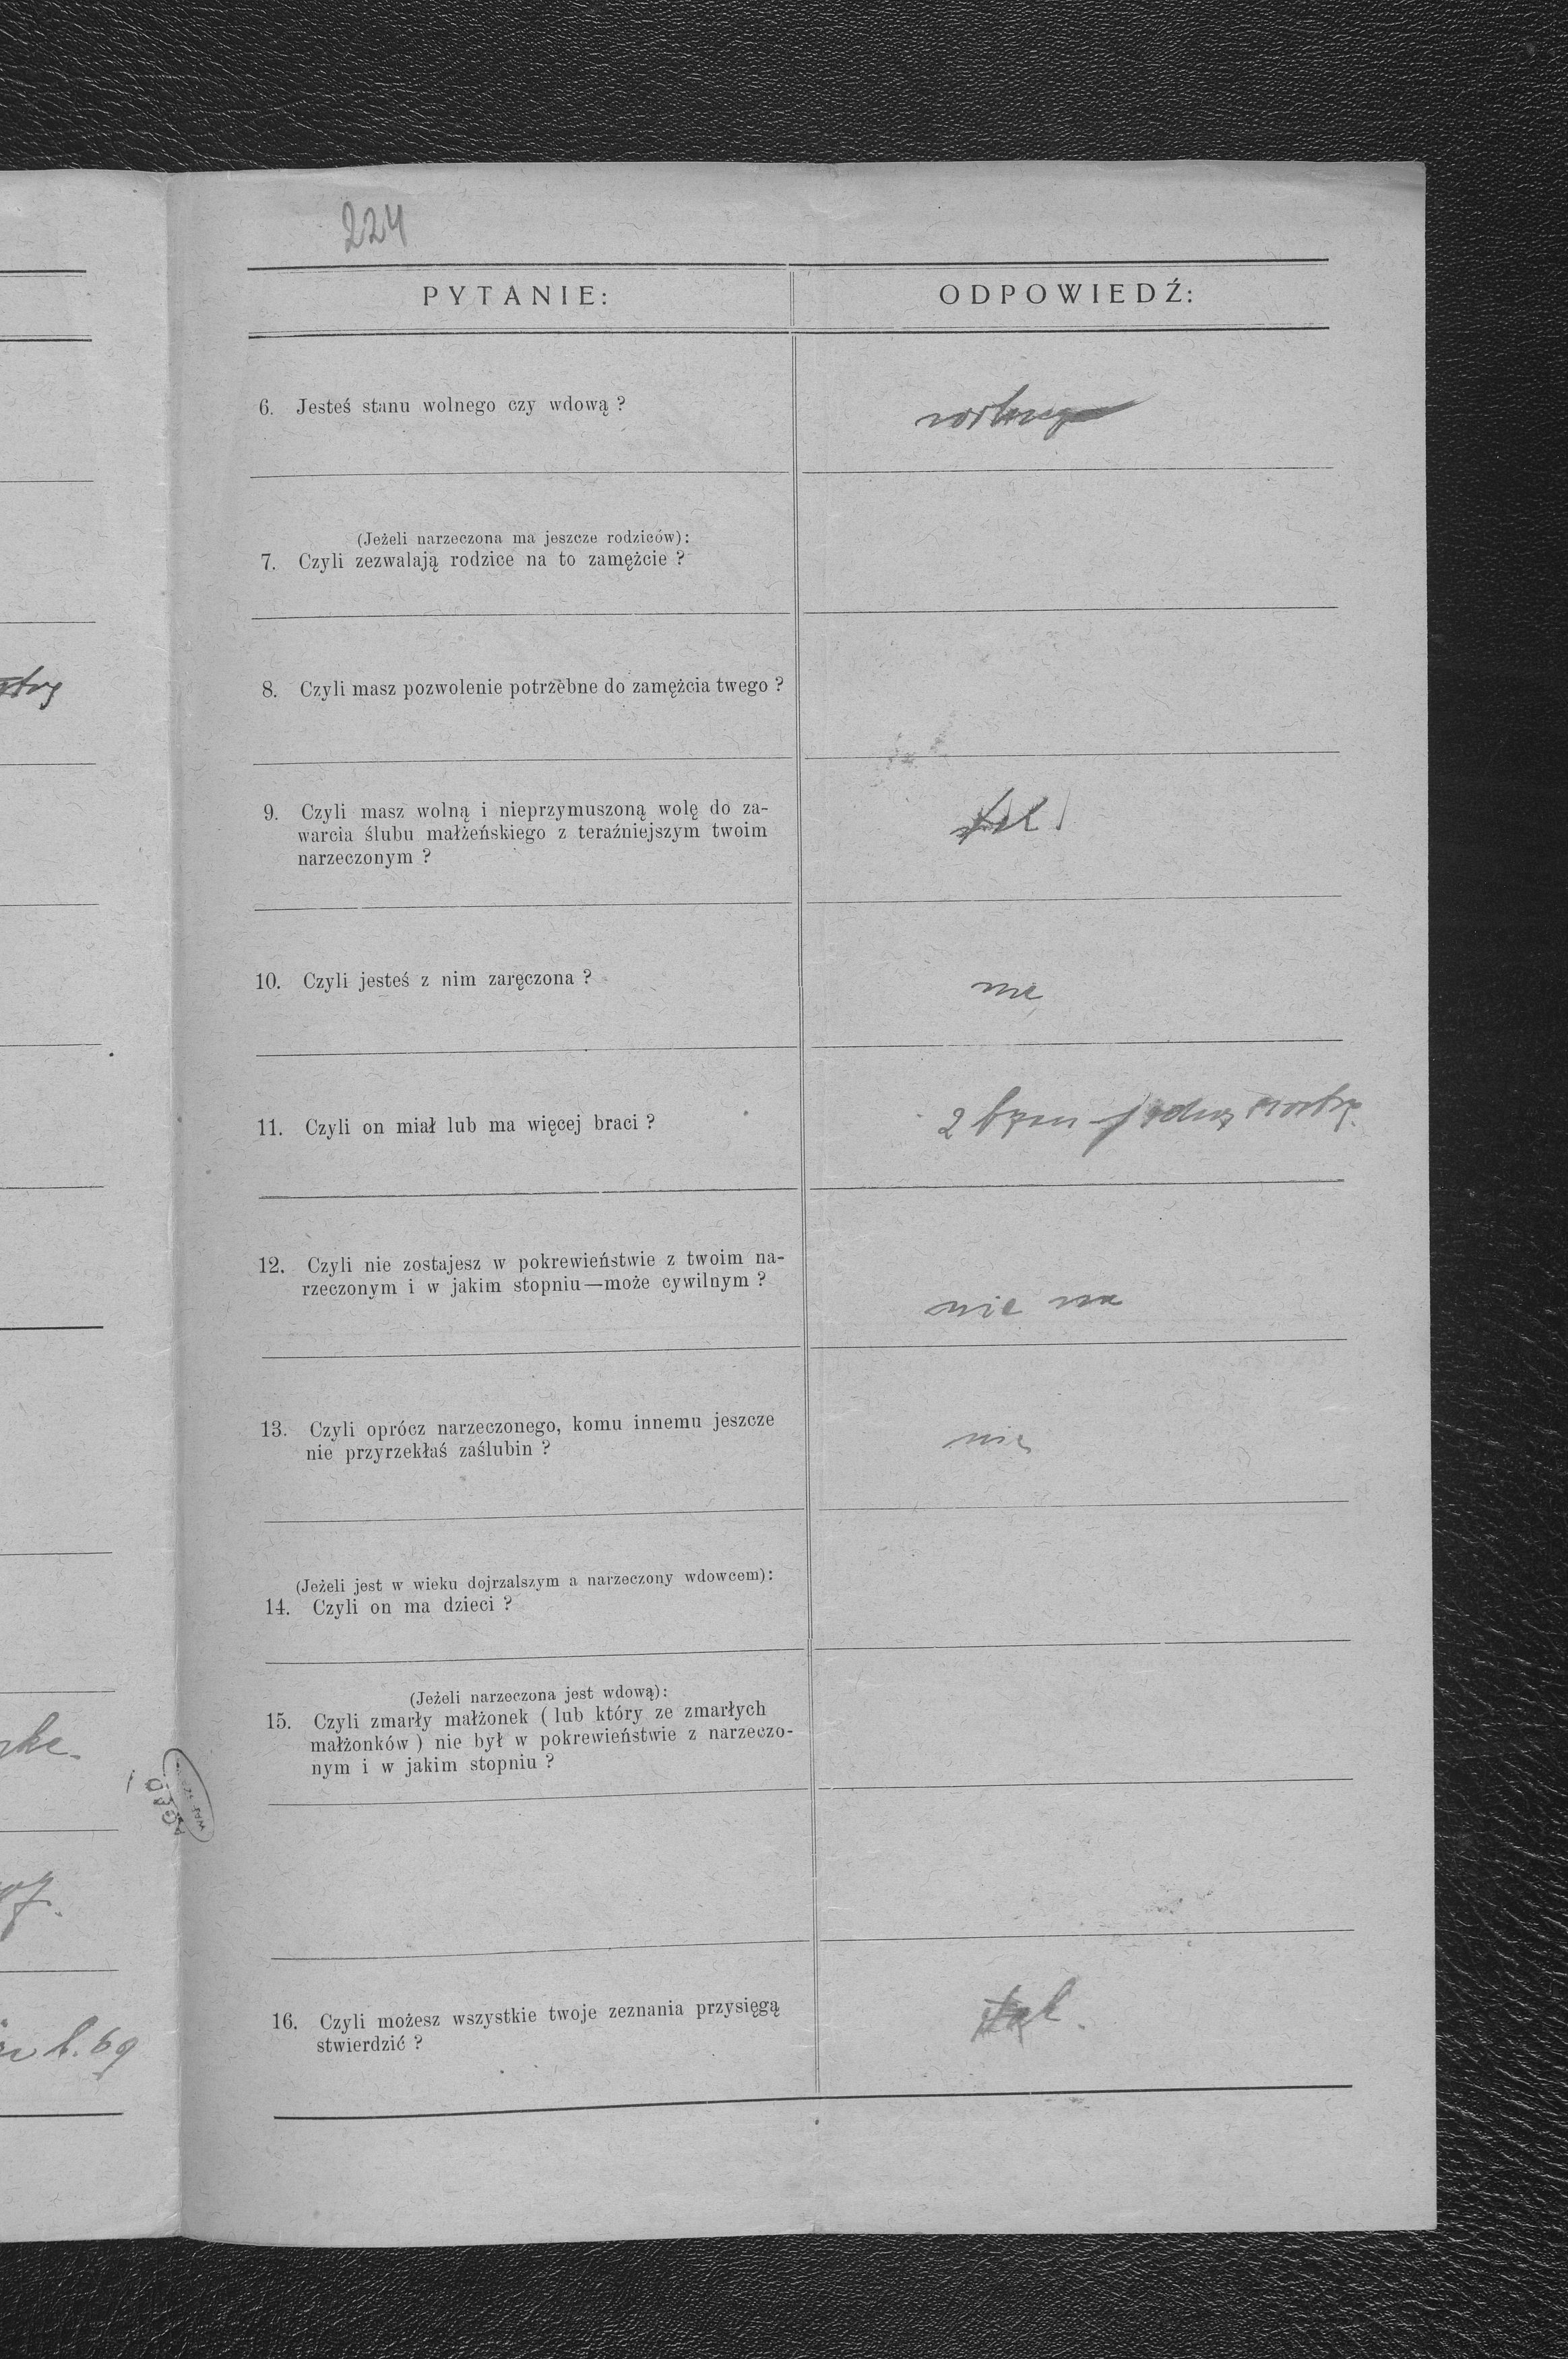 224
PYTANIE:
ODPOWIEDŹ:
6. Jesteś stanu wolnego czy wdową ?
wolnego
(Jeżeli narzeczona ma jeszcze rodziców):
7. Czyli zezwalają rodzice na to zamężcie ?
8. Czyli masz pozwolenie potrzebne do zamężcia twego ?
9. Czyli masz wolną i nieprzymuszoną wolę do za-
warcia ślubu małżeńskiego z teraźniejszym twoim
narzeczonym ?
tak
10. Czyli jesteś z nim zaręczona ?
nie
11. Czyli on miał lub ma więcej braci ?
2 braci jedną siostrę.
12. Czyli nie zostajesz w pokrewieństwie z twoim na-
rzeczonym i w jakim stopniu—może cywilnym ?
nie ma
13. Czyli oprócz narzeczonego, komu innemu jeszcze
nie przyrzekłaś zaślubin ?
nie
(Jeżeli jest w wieku dojrzalszym a narzeczony wdowcem):
14. Czyli on ma dzieci ?
(Jeżeli narzeczona jest wdową):
15. Czyli zmarły małżonek ( lub który ze zmarłych
małżonków ) nie był w pokrewieństwie z narzeczo-
nym i w jakim stopniu ?
16. Czyli możesz wszystkie twoje zeznania przysięgą
stwierdzić ?
tak.
l. 69